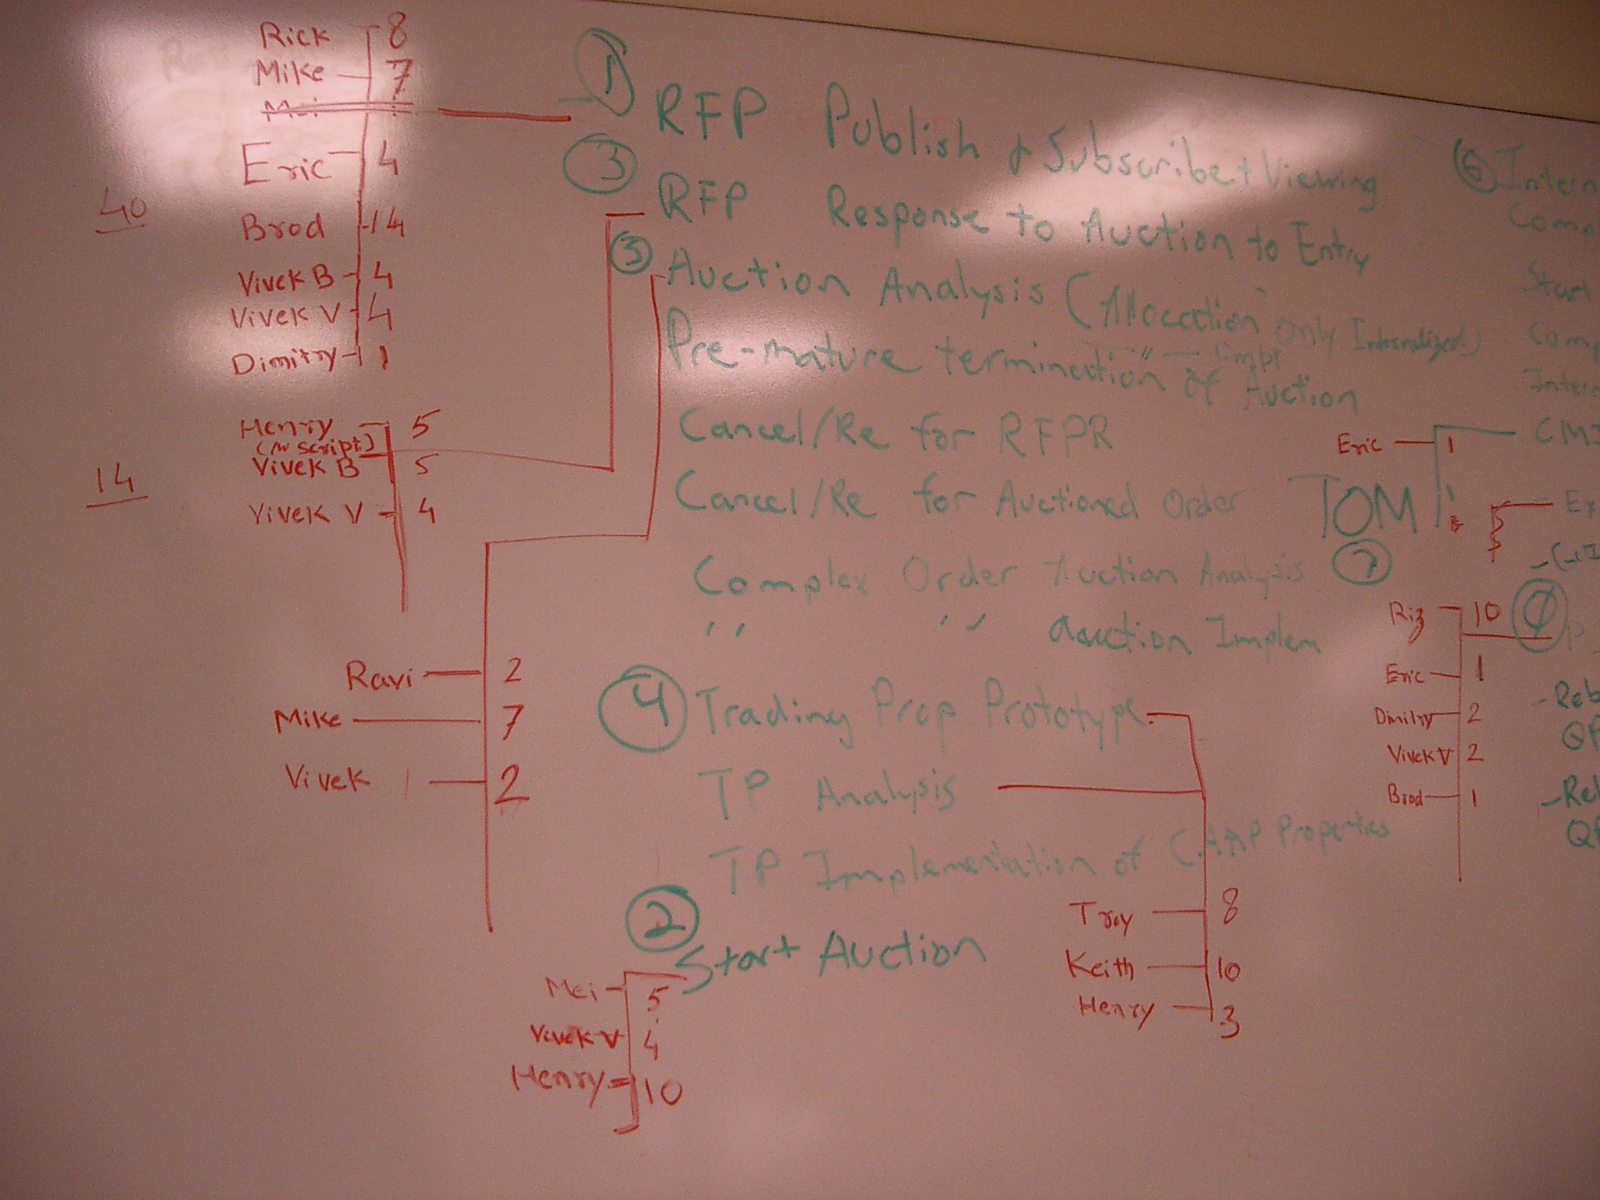 Rick 8
Mike 7
Mei
Eric 4
40
Brod 14
Vivek B 4
Vivek V 4
Dimitry 1
Henry 5
(N script)
Vivek B 5
14
Vivek V 4
Ravi 2
Mike 7
Vivek 2
① RFP Publish & Subscribe + Viewing
③ RFP Response to Auction to Entry
⑤ Auction Analysis (Allocation only Internalized)
Pre-mature termination of Auction
" Empl
Cancel/Re for RFPR
Cancel/Re for Auctioned Order
Complex Order Auction Analysis
" " Auction Implem
④ Trading Prop Prototype
TP Analysis
TP Implementation of CAAP Properties
Troy 8
Keith 10
Henry 3
② Start Auction
Mei 5
Vivek V 4
Henry 10
⑥ Intern
Comp
Start
Comp
Intern
Eric 1
TOM
⑦
Ex
Riz 10
Eric 1
Dimitry 2
Vivek V 2
Brod 1
- Reb
QP
- Rel